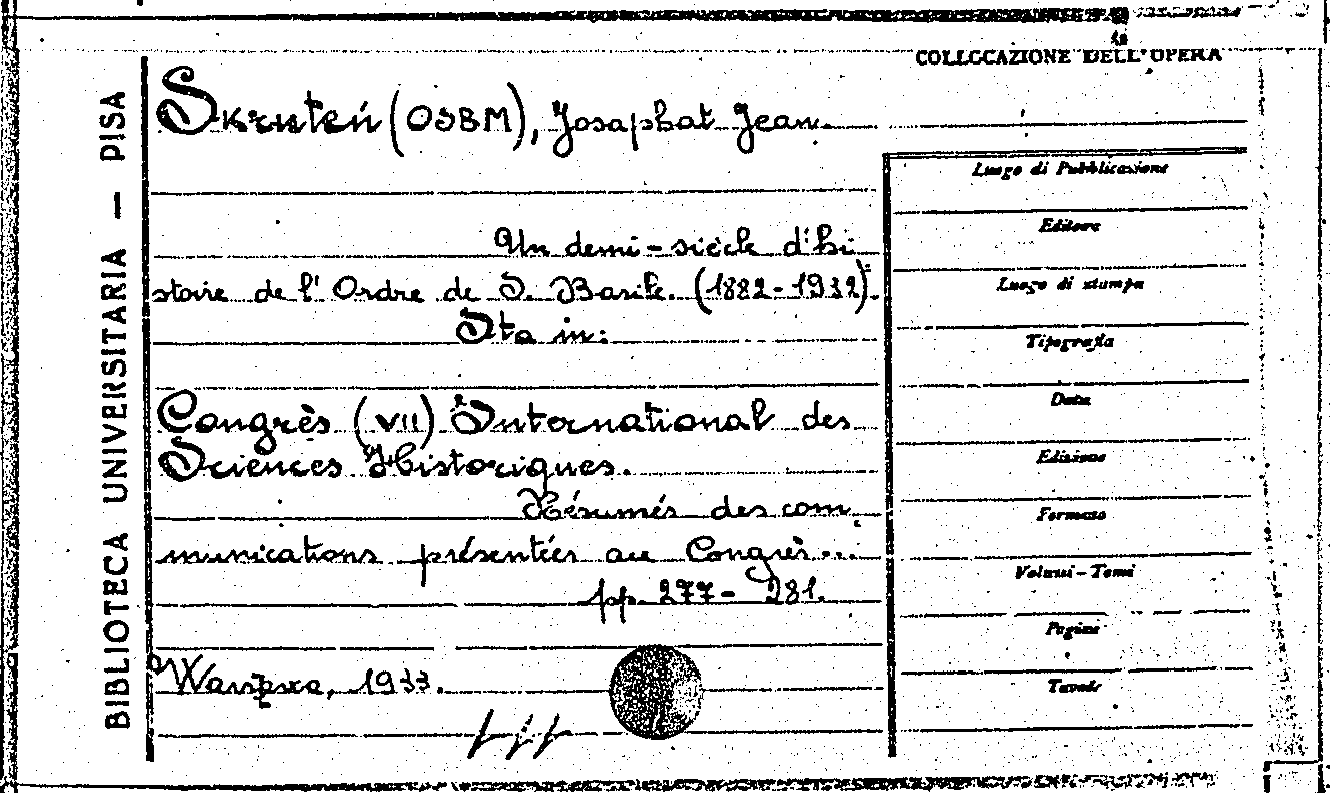 COLLOCAZIONE DELL'OPERA
BIBLIOTECA UNIVERSITARIA — PISA
Skruteń (OSBM), Josaphat Jean.
Un demi-siècle d'hi
stoire de l'Ordre de S. Basile. (1882-1932).
Sta in:
Congrès (VII) International des
Sciences Historiques.
Résumés des com
munications présentées au Congrès...
pp. 277-281.
1933.
Luogo di Pubblicazione
Editore
Luogo di stampa
Tipografia
Data
Edizione
Formato
Volumi-Tomi
Pagine
Tavole